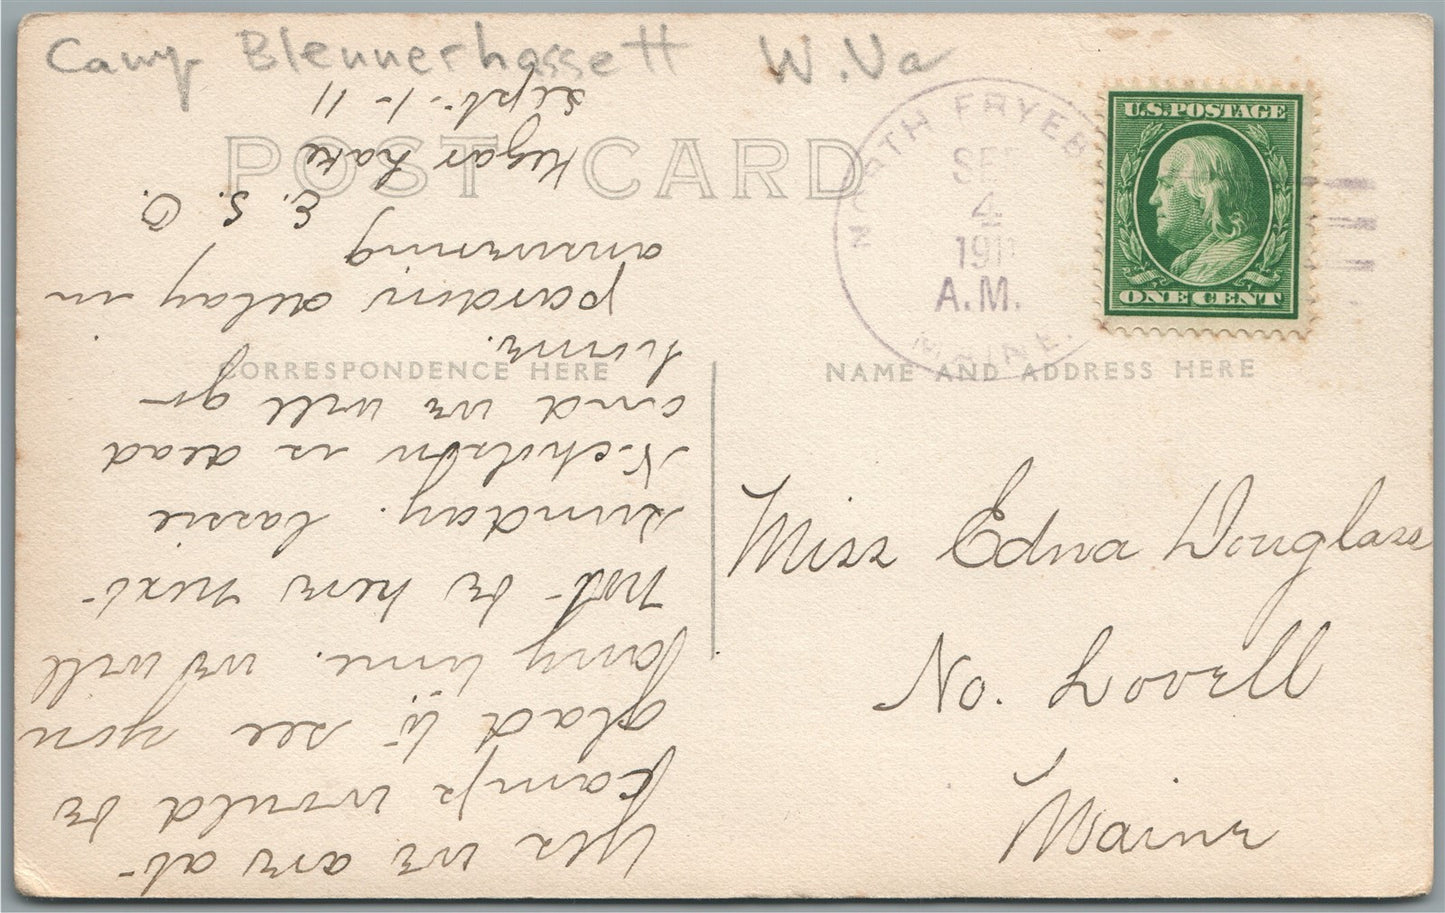 Camp Blennerhassett W.Va
POST CARD
NORTH FRYEB
SEP
4
1911
A.M.
MAINE.
U.S. POSTAGE
ONE CENT
CORRESPONDENCE HERE
NAME AND ADDRESS HERE
Miss Edna Douglass
No. Lovell
Maine
Yes we are at
camp would be
glad to see you
any time. we will
not be here next
sunday. Cassie
Nicholson is dead
and we will go
home.
pardon delay in
answering
E. S. O.
Kezar Lake
Sept-1-11